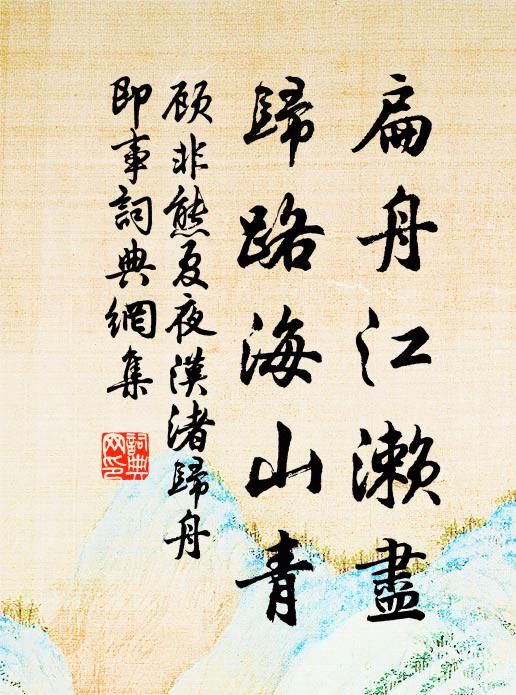 扁舟江濑盡
歸路海山青
顾非熊夏夜漢渚歸舟
即事詞典網集
詞典网印